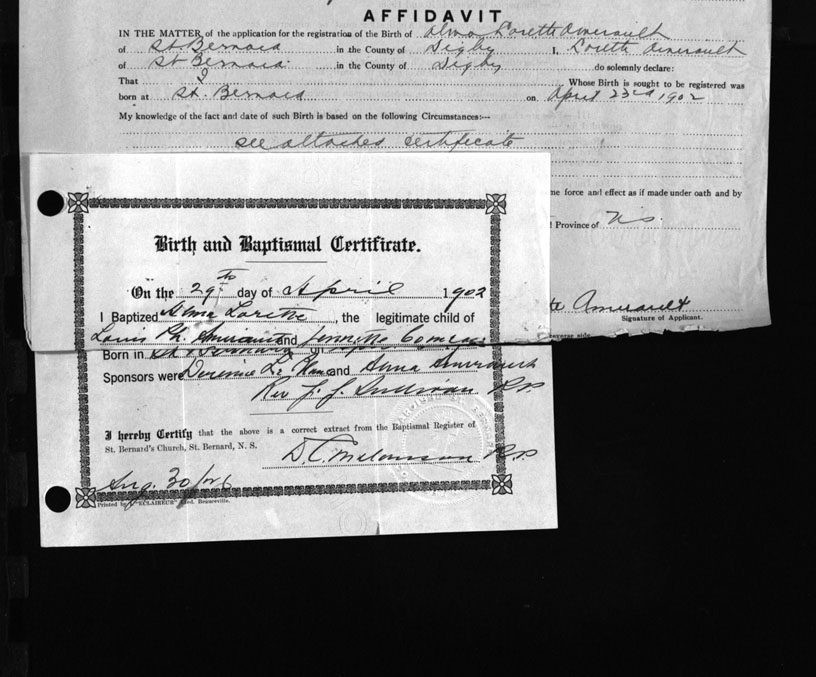 AFFIDAVIT
IN THE MATTER of the application for the registration of the Birth of Alma Lorette Amirault
of St. Bernard in the County of Digby I, Lorette Amirault
of St Bernard in the County of Digby do solemnly declare:
That I Whose Birth is sought to be registered was
born at St. Bernard on April 23rd 1902
My knowledge of the fact and date of such Birth is based on the following Circumstances:—
see attached certificate
me force and effect as if made under oath and by
Province of N.S.
Amirault
Signature of Applicant.
reverse side
Birth and Baptismal Certificate.
On the 29th day of April 1902
I Baptized Alma Lorette, the legitimate child of
Louis Amirault and Comeau
Born in
Sponsors were and Anna Amirault
Rev J. J. Sullivan P.P.
I hereby Certify that the above is a correct extract from the Baptismal Register of
St. Bernard's Church, St. Bernard, N. S.
D. C. Melanson P.P.
Aug. 30
Printed by "L'ECLAIREUR" Ltd. Beauceville.